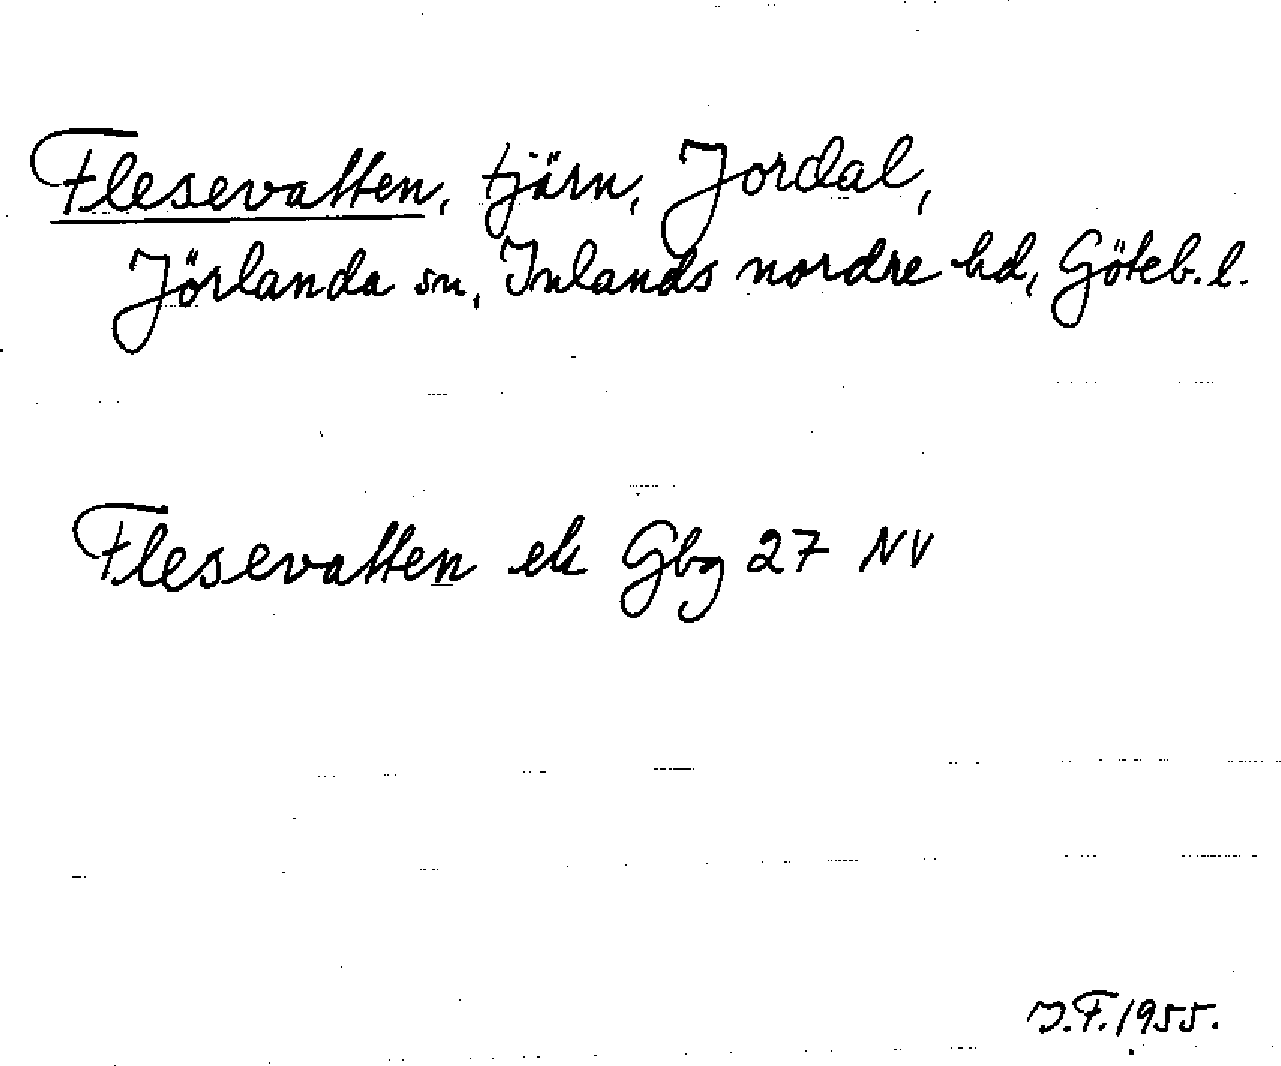 Flesevatten, tjärn, Jordal,
Jörlanda sn, Inlands nordre hd, Göteb. l.
Flesevatten ek Gbg 27 NV
J.F. 1955.